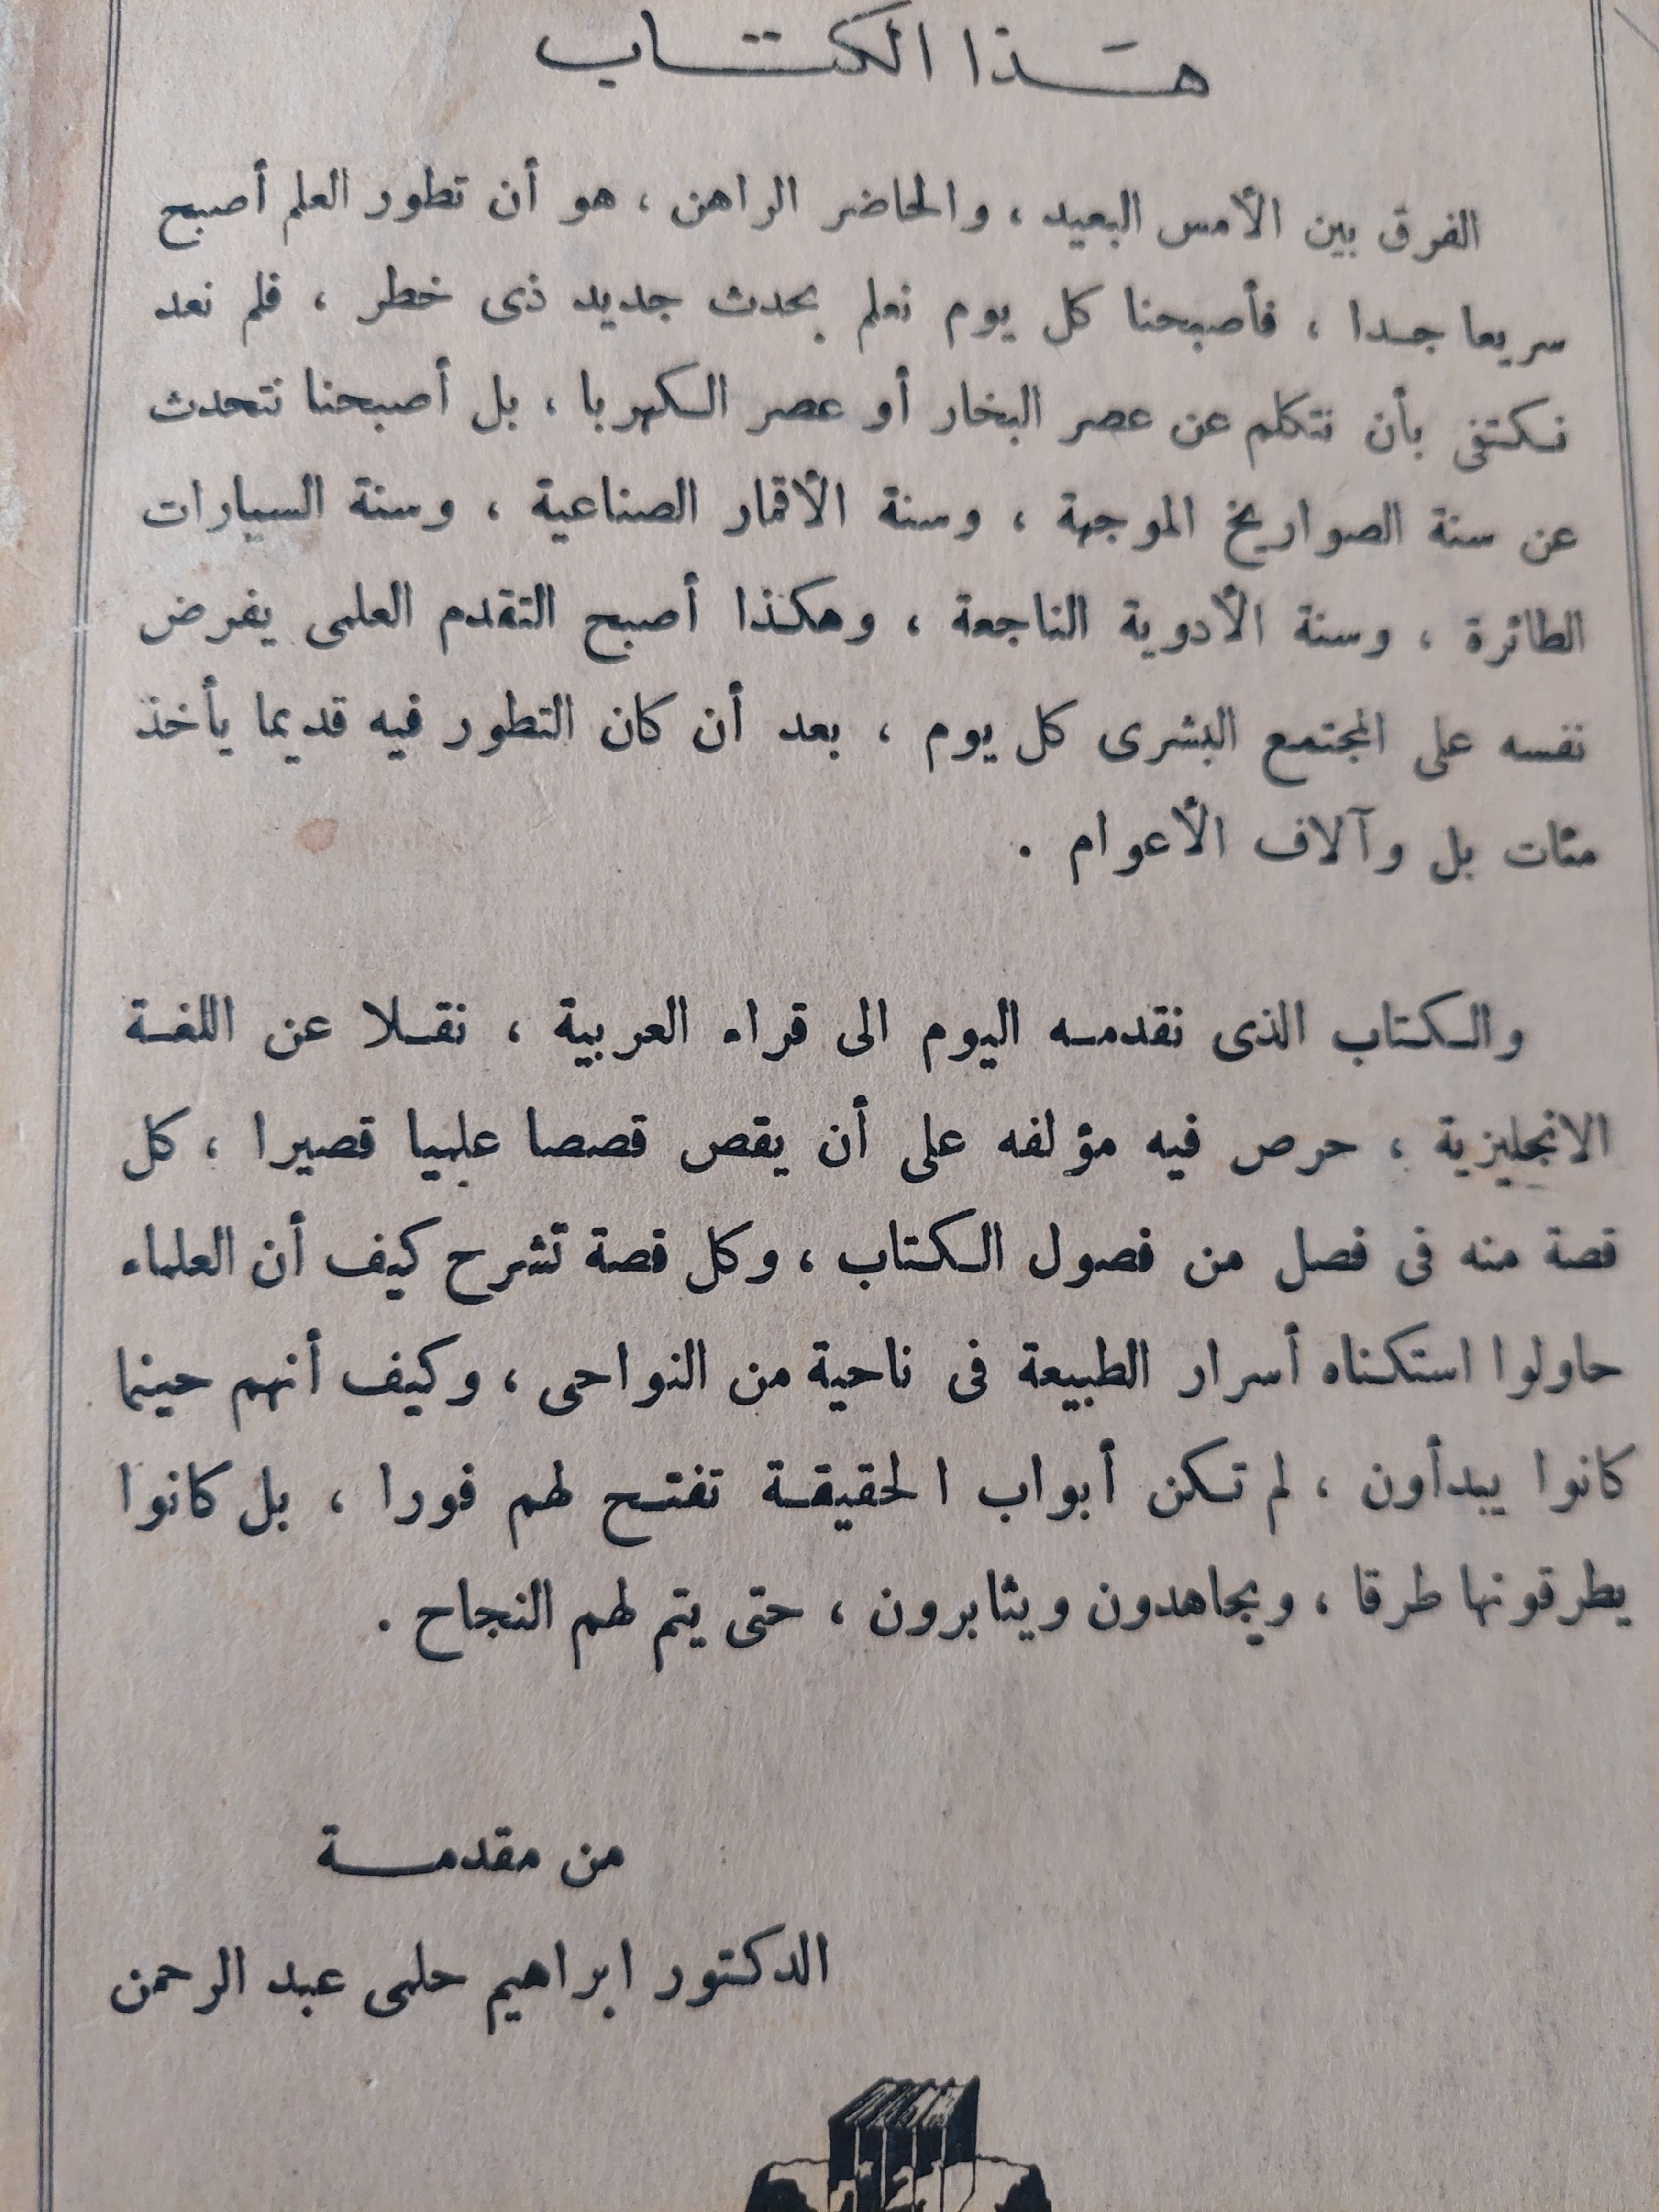 هذا الكتاب
الفرق بين الأمس البعيد ، والحاضر الراهن ، هو أن تطور العلم أصبح
سريعا جدا ، فأصبحنا كل يوم نعلم بحدث جديد ذى خطر ، فلم نعد
نكتفى بأن نتكلم عن عصر البخار أو عصر الكهربا ، بل أصبحنا نتحدث
عن سنة الصواريخ الموجهة ، وسنة الأقمار الصناعية ، وسنة السيارات
الطائرة ، وسنة الأدوية الناجعة ، وهكذا أصبح التقدم العلمى يفرض
نفسه على المجتمع البشرى كل يوم ، بعد أن كان التطور فيه قديما يأخذ
مئات بل وآلاف الأعوام .
والكتاب الذى نقدمه اليوم الى قراء العربية ، نقلا عن اللغة
الانجليزية ، حرص فيه مؤلفه على أن يقص قصصا علميا قصيرا ، كل
قصة منه فى فصل من فصول الكتاب ، وكل قصة تشرح كيف أن العلماء
حاولوا استكناه أسرار الطبيعة فى ناحية من النواحى ، وكيف أنهم حينما
كانوا يبدأون ، لم تكن أبواب الحقيقة تفتح لهم فورا ، بل كانوا
يطرقونها طرقا ، ويجاهدون ويثابرون ، حتى يتم لهم النجاح .
من مقدمة
الدكتور ابراهيم حلمى عبد الرحمن